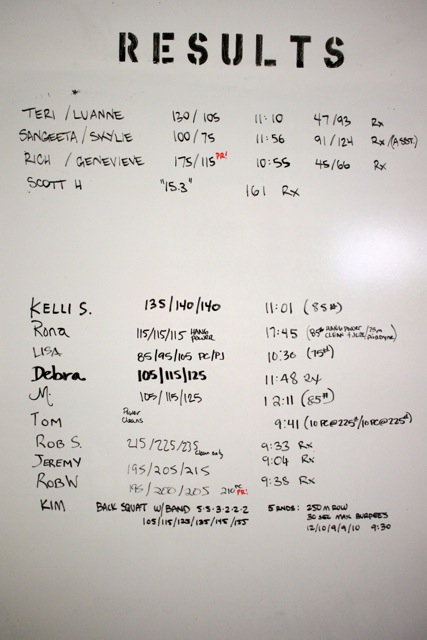 RESULTS
*
TERI / LUANNE 130 / 105 11:10 47/93 Rx
SANGEETA / SKYLIE 100 / 75 11:56 91/124 Rx/(ASST.)
RICH / GENEVIEVE 175/115 PR! 10:55 45/66 Rx
SCOTT H "15.3" 161 Rx
KELLI S. 135/140/140 11:01 (85#)
Rona 115/115/115 HANG POWER 17:45 (85# HANG POWER CLEAN + /25m
LISA 85/95/105 PC/PJ 10:36 (75#)
Debra 105/115/125 11:48 Rx
M. 105/115/125 12:11 (85#)
TOM Power Cleans 9:41 (10 PC@225#/10 PC@225#)
ROB S. 215/225/235 clean only 9:33 Rx
JEREMY 195/205/215 9:04 Rx
ROB W 195/200/205 210 PC PR! 9:38 Rx
KIM BACK SQUAT W/BAND 5·5·3·2·2·2 5 RNDS: 250 M ROW
30 SEC MAX BURPEES
105/115/125/135/145/155 12/10/9/9/10 9:30